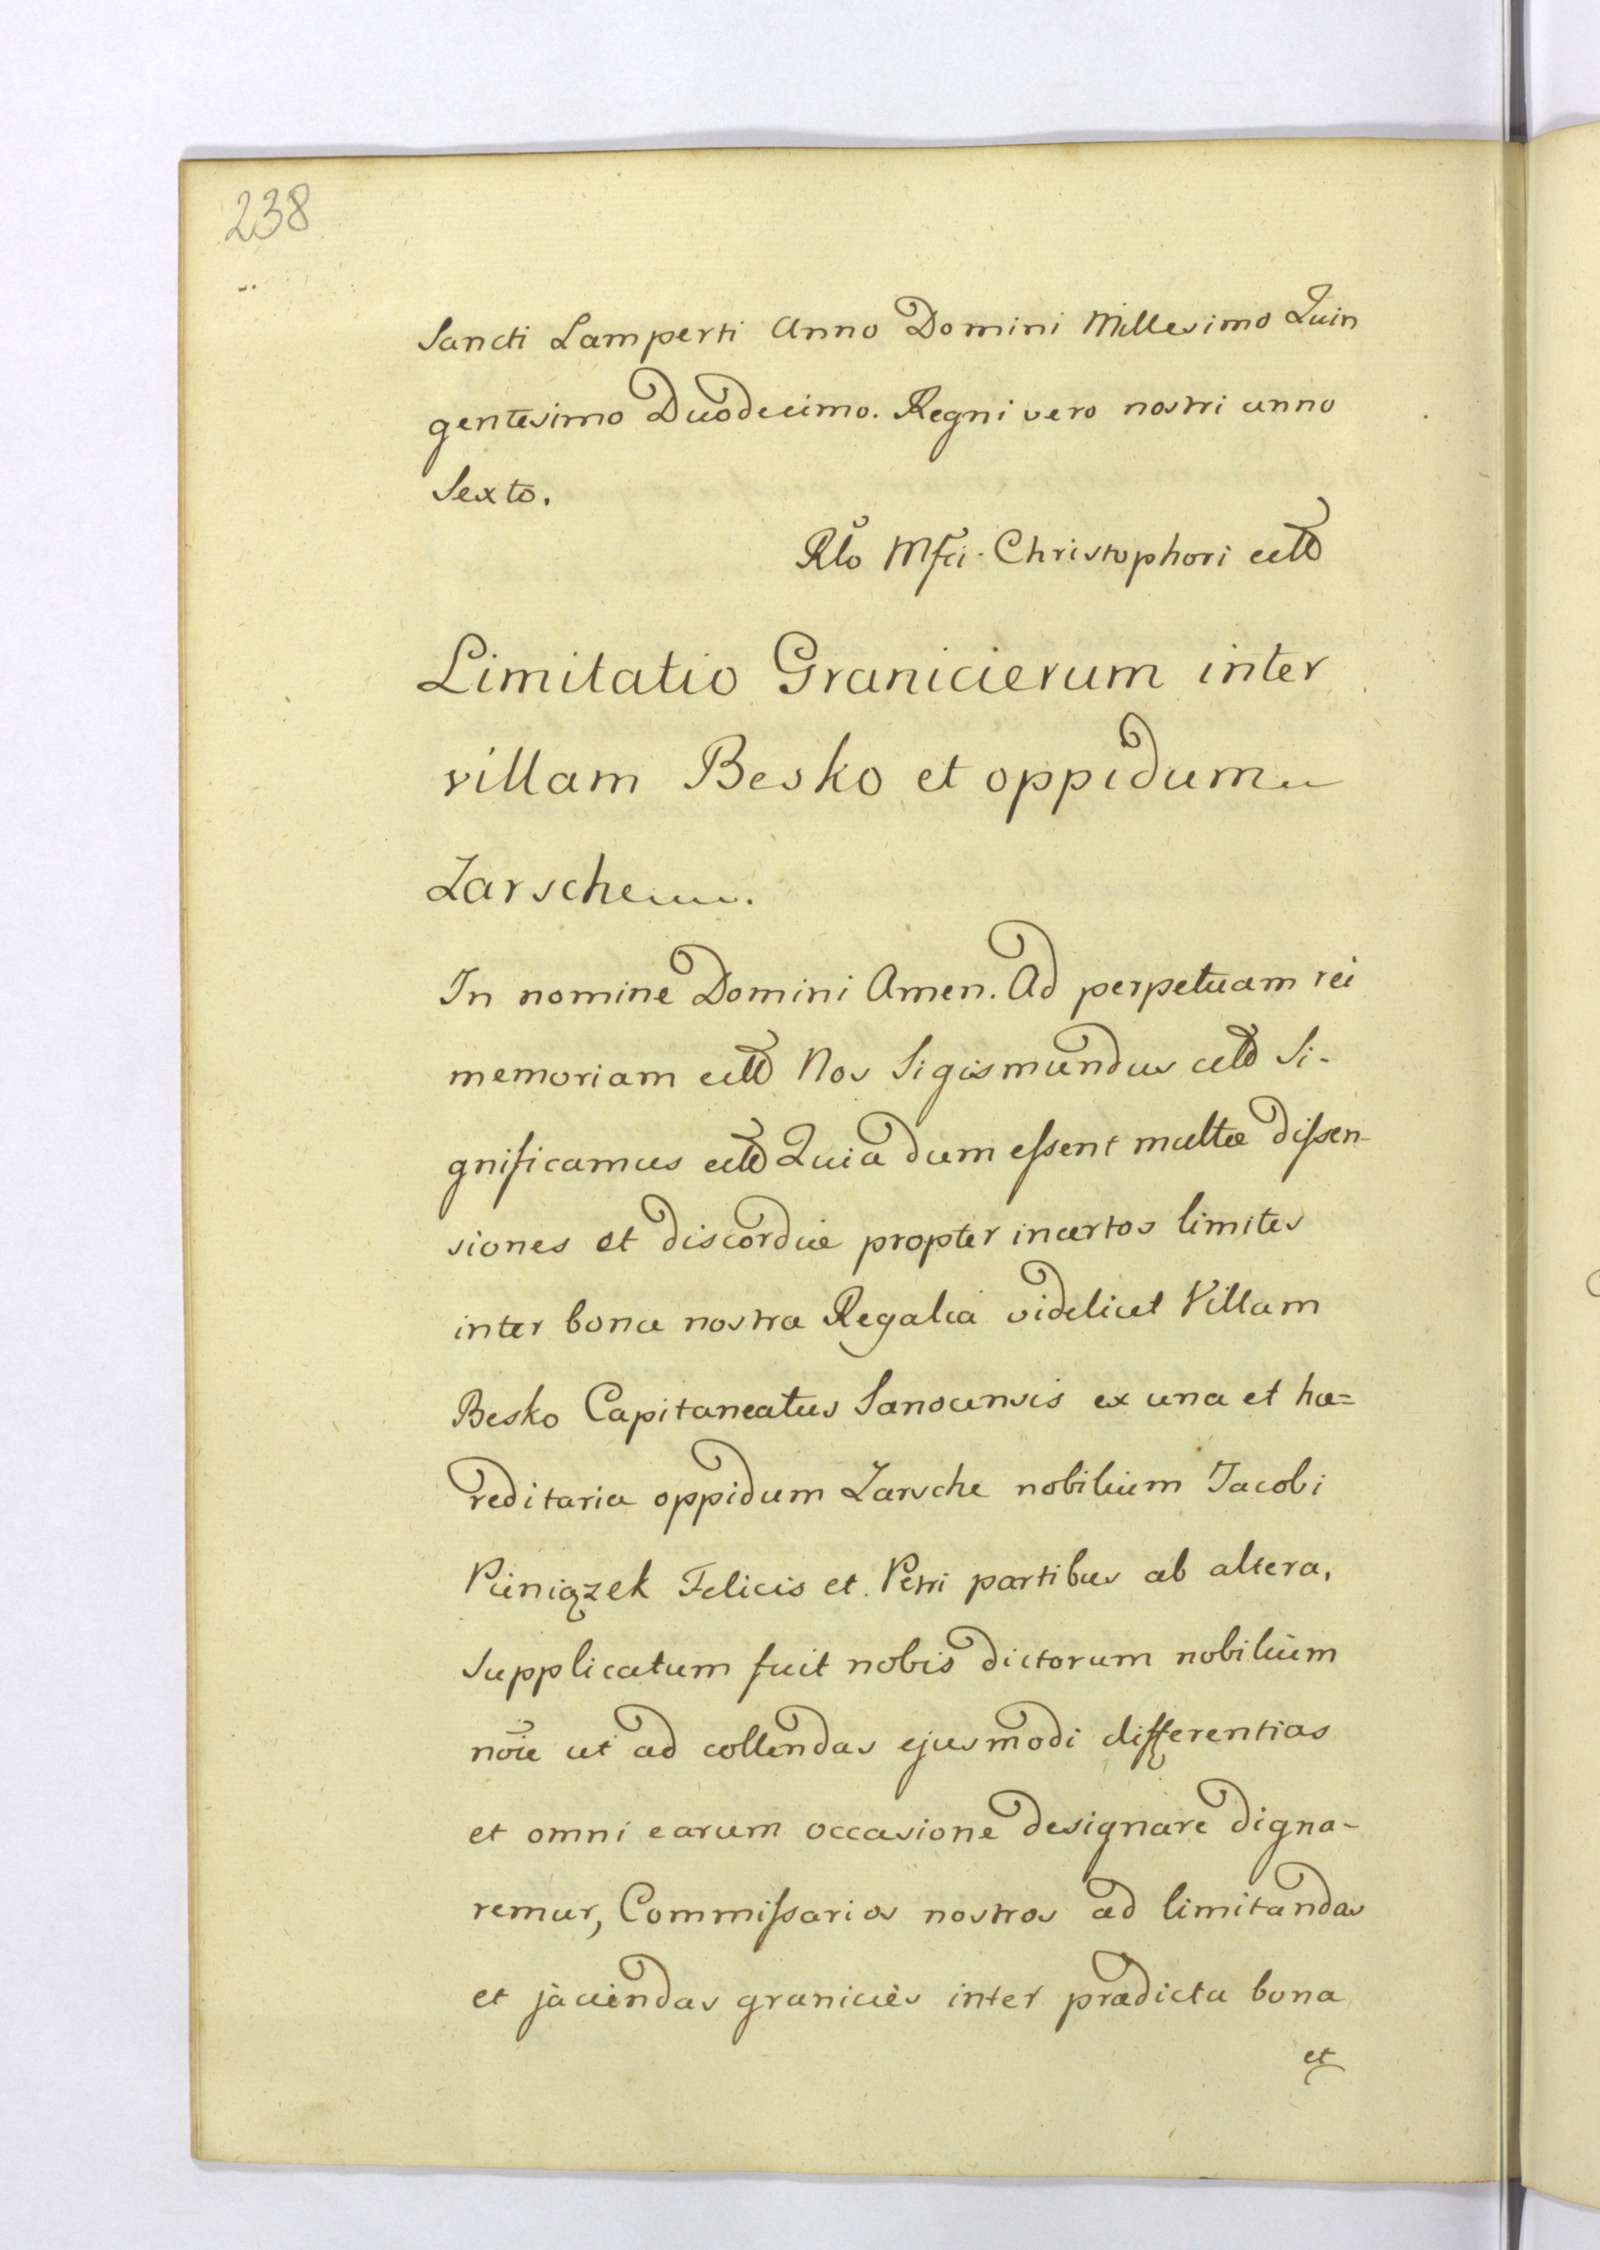 238
Sancti Lamperti Anno Domini Millesimo Quin
gentesimo Duodecimo. Regni vero nostri anno
Sexto.
Rlo Mfci. Christophori etta
Limitatio Granicierum inter
villam Besko et oppidum
Zarsche.
In nomine Domini Amen. Ad perpetuam rei
memoriam etta Nos Sigismundus etta Si-
gnificamus etta Quia dum essent multæ dissen-
siones et discordiæ propter incertos limites
inter bona nostra Regalia videlicet Villam
Besko Capitaneatus Sanocensis ex una et hæ=
reditaria oppidum Zarsche nobilium Jacobi
Pieniązek Felicis et Petri partibus ab altera,
supplicatum fuit nobis dictorum nobilium
noie ut ad tollendas ejusmodi differentias
et omni earum occasione designare digna-
remur, Commissarios nostros ad limitandas
et jaciendas granicies inter prædicta bona
et